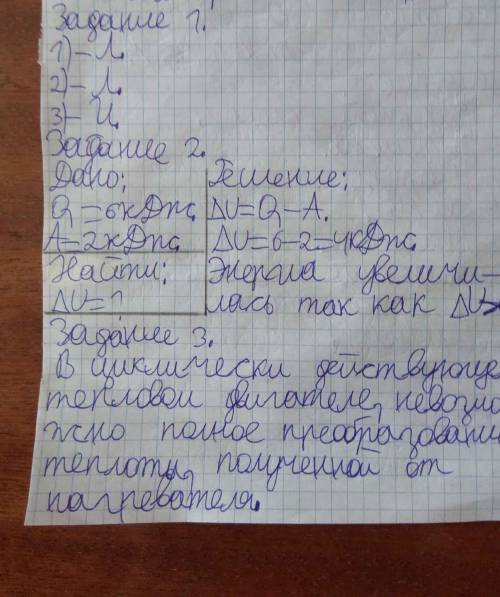 Задание 1.
1)-Л.
2)-Л.
3)-И.
Задание 2.
Дано:
Решение:
Q=6кДж. ΔU=Q-A.
A=2кДж. ΔU=6-2=4кДж.
Найти: Энергиа увеличи-
ΔU=? лась так как ΔU>
Задание 3.
В циклически действующе
тепловом двигателе, невозмо
жно полное преобразовани
теплоты, полученной от
нагревателя.